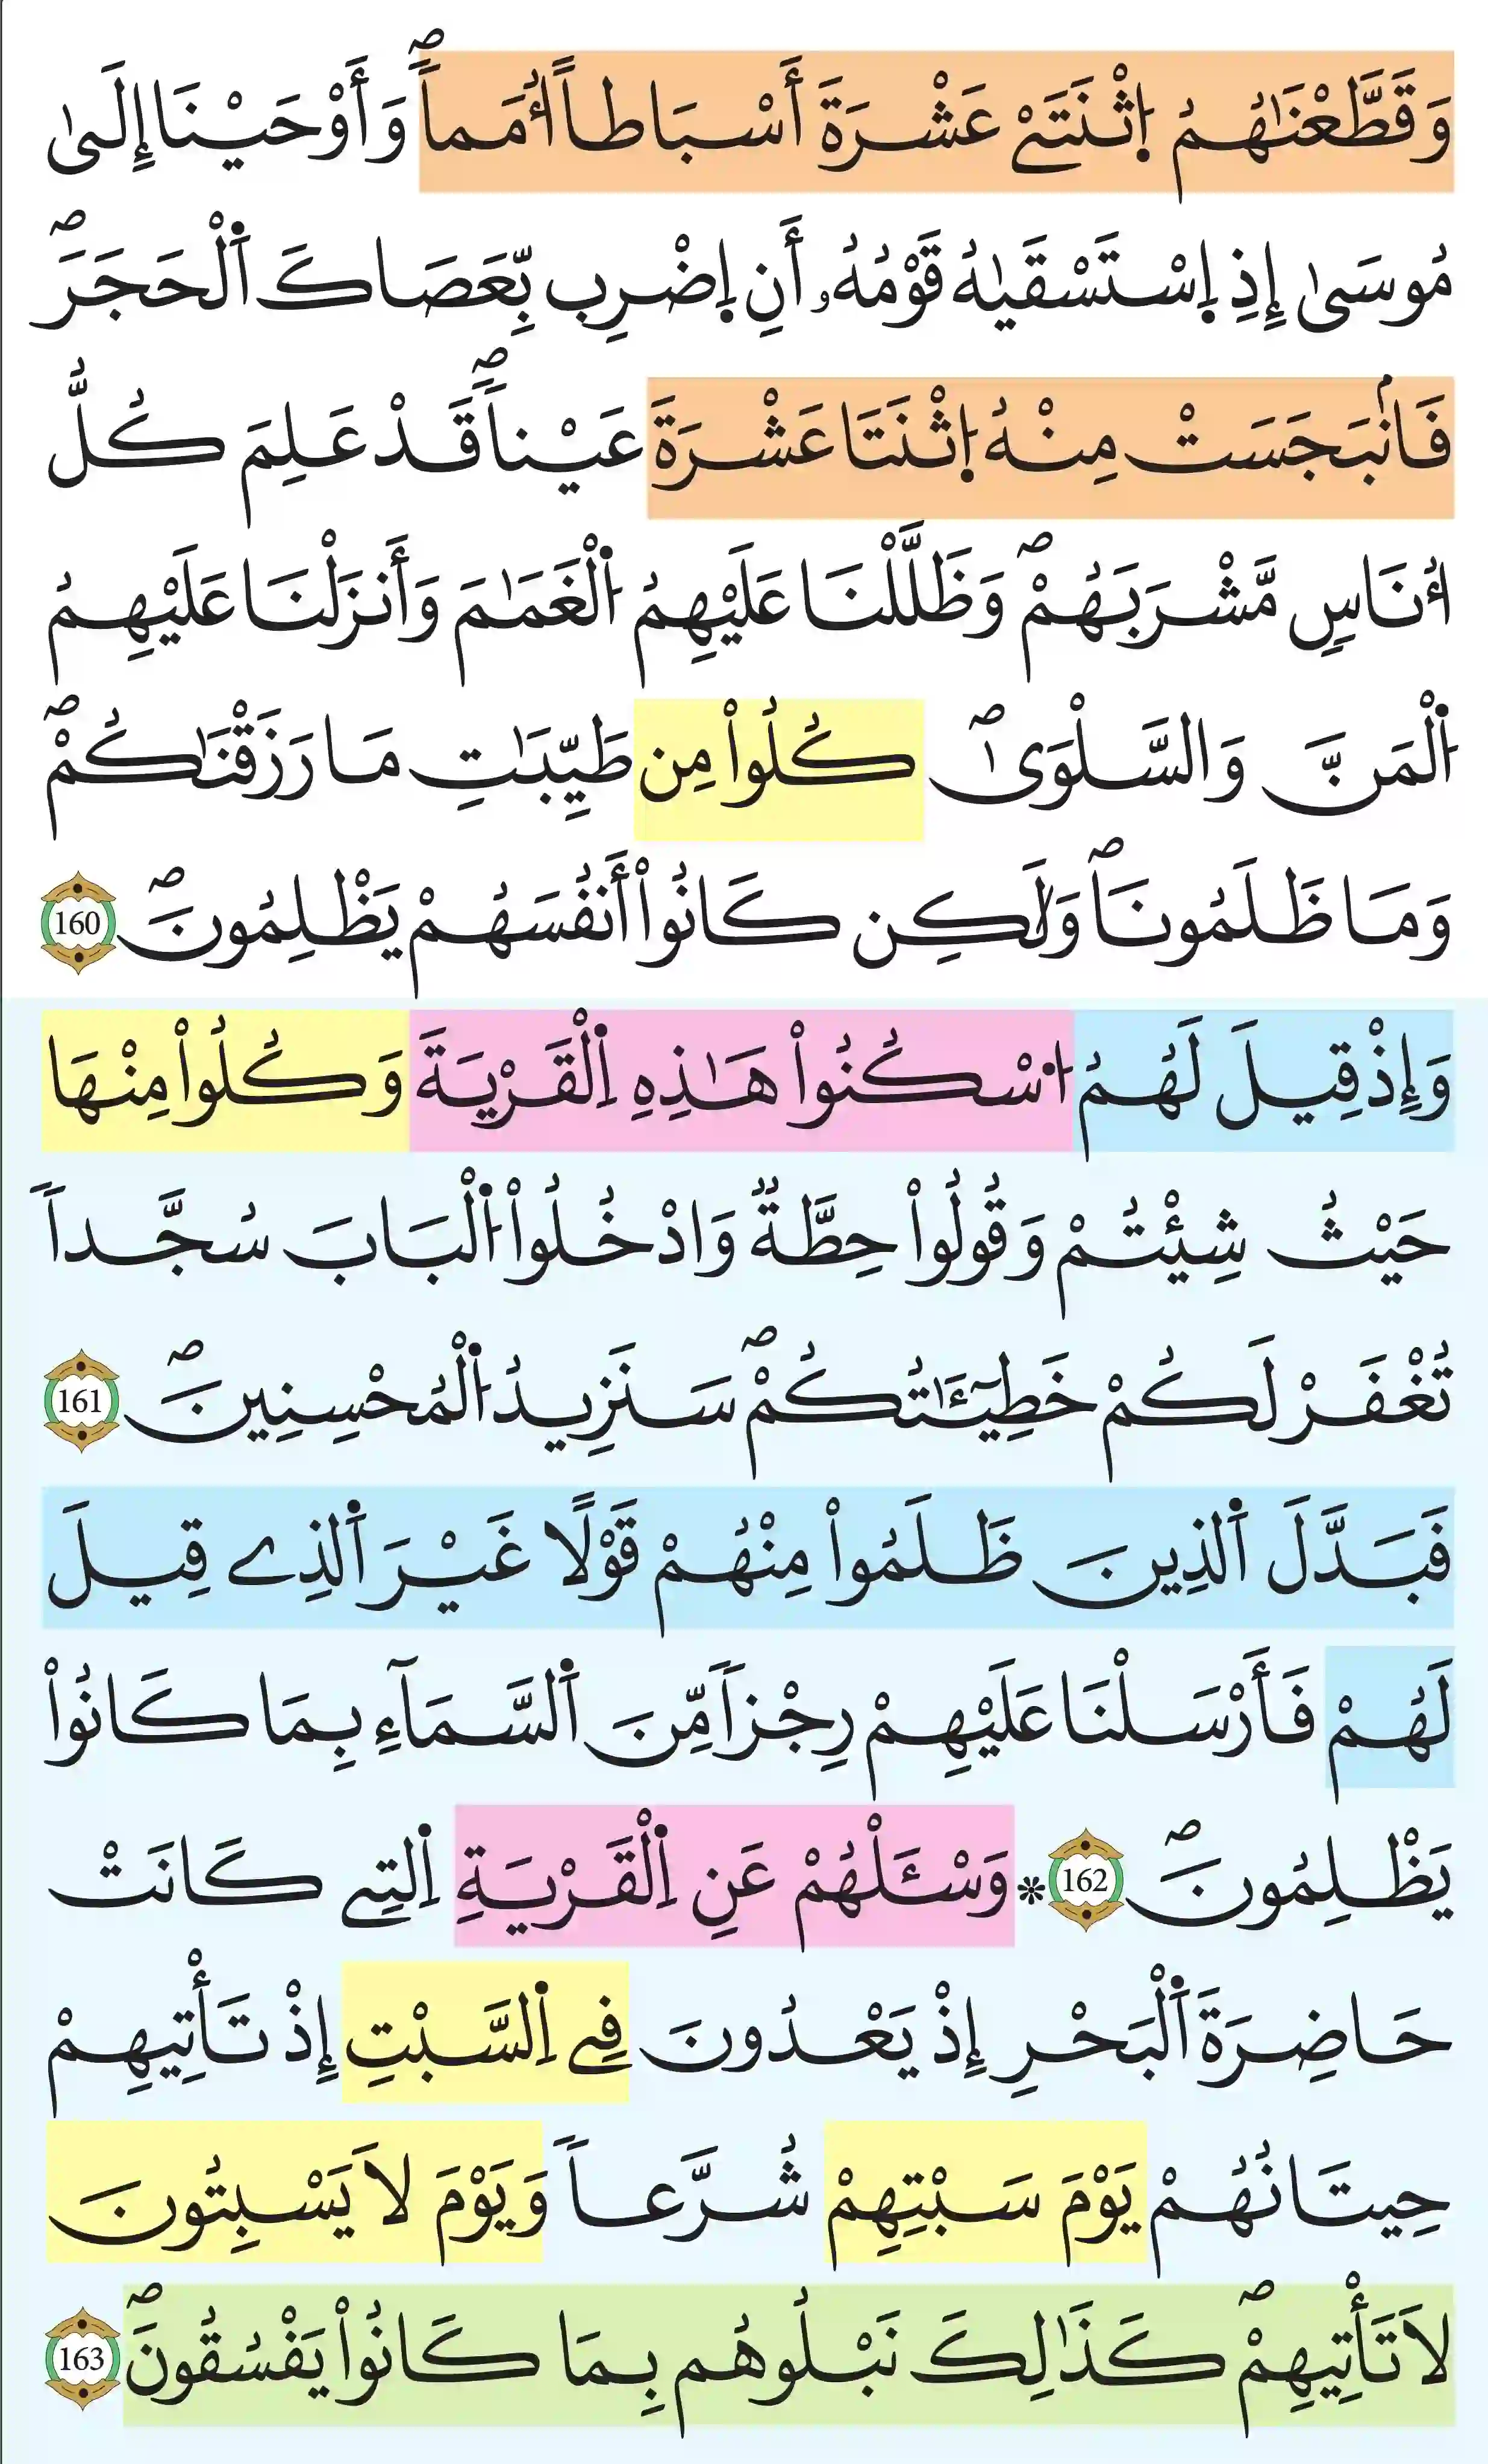 وَقَطَّعْنَٰهُمُ اُ۪ثْنَتَےْ عَشْرَةَ أَسْبَاطاً اُمَماٗۖ وَأَوْحَيْنَا إِلَىٰ
مُوسَىٰ إِذِ اِ۪سْتَسْقَيٰهُ قَوْمُهُۥ أَنِ اِ۪ضْرِب بِّعَصَاكَ اَ۬لْحَجَرَۖ
فَانۢبَجَسَتْ مِنْهُ اُ۪ثْنَتَا عَشْرَةَ عَيْناٗۖ قَدْ عَلِمَ كُلُّ
أُنَاسٖ مَّشْرَبَهُمْۖ وَظَلَّلْنَا عَلَيْهِمُ اُ۬لْغَمَٰمَ وَأَنزَلْنَا عَلَيْهِمُ
اُ۬لْمَنَّ وَالسَّلْوَىٰۖ كُلُواْ مِن طَيِّبَٰتِ مَا رَزَقْنَٰكُمْۖ
وَمَا ظَلَمُونَاۖ وَلَٰكِن كَانُواْ أَنفُسَهُمْ يَظْلِمُونَۖ 160
وَإِذْ قِيلَ لَهُمُ اُ۟سْكُنُواْ هَٰذِهِ اِ۬لْقَرْيَةَ وَكُلُواْ مِنْهَا
حَيْثُ شِئْتُمْ وَقُولُواْ حِطَّةٞ وَادْخُلُواْ اُ۬لْبَابَ سُجَّداٗ
تُغْفَرْ لَكُمْ خَطِيٓـَٰٔتُكُمْۖ سَنَزِيدُ اُ۬لْمُحْسِنِينَۖ 161
فَبَدَّلَ اَ۬لذِينَ ظَلَمُواْ مِنْهُمْ قَوْلًا غَيْرَ اَ۬لذِے قِيلَ
لَهُمْ فَأَرْسَلْنَا عَلَيْهِمْ رِجْزاٗ مِّنَ اَ۬لسَّمَآءِ بِمَا كَانُواْ
يَظْلِمُونَۖ 162 ۞ وَسْـَٔلْهُمْ عَنِ اِ۬لْقَرْيَةِ اِ۬لتِے كَانَتْ
حَاضِرَةَ اَ۬لْبَحْرِ إِذْ يَعْدُونَ فِے اِ۬لسَّبْتِ إِذْ تَأْتِيهِمْ
حِيتَانُهُمْ يَوْمَ سَبْتِهِمْ شُرَّعاٗ وَيَوْمَ لَا يَسْبِتُونَ
لَا تَأْتِيهِمْۖ كَذَٰلِكَ نَبْلُوهُم بِمَا كَانُواْ يَفْسُقُونَۖ 163